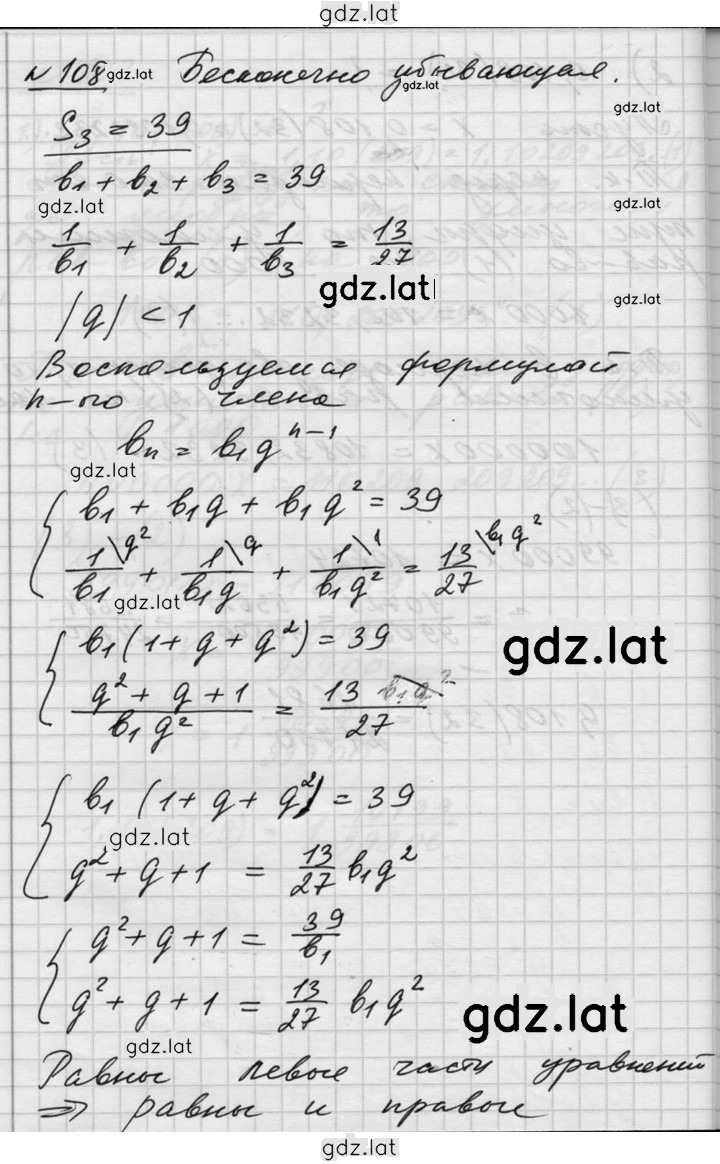 gdz.lat
N 108 gdz.lat Бесконечно убывающая.
gdz.lat
S₃ = 39
gdz.lat
b₁ + b₂ + b₃ = 39
gdz.lat
gdz.lat
1/b₁ + 1/b₂ + 1/b₃ = 13/27
gdz.lat
gdz.lat
|q| < 1
Воспользуемся формулой
n-го члена
bₙ = b₁qⁿ⁻¹
gdz.lat
b₁ + b₁q + b₁q² = 39
1\q²/b₁ + 1\q/b₁q + 1\1/b₁q² = 13\b₁q²/27
gdz.lat
b₁(1 + q + q²) = 39
gdz.lat
q² + q + 1/b₁q² = 13 b₁q²/27
b₁(1 + q + q²) = 39
gdz.lat
q² + q + 1 = 13/27 b₁q²
q² + q + 1 = 39/b₁
q² + q + 1 = 13/27 b₁q²
gdz.lat
gdz.lat
Равны левые части уравнений
⇒ равны и правые
gdz.lat